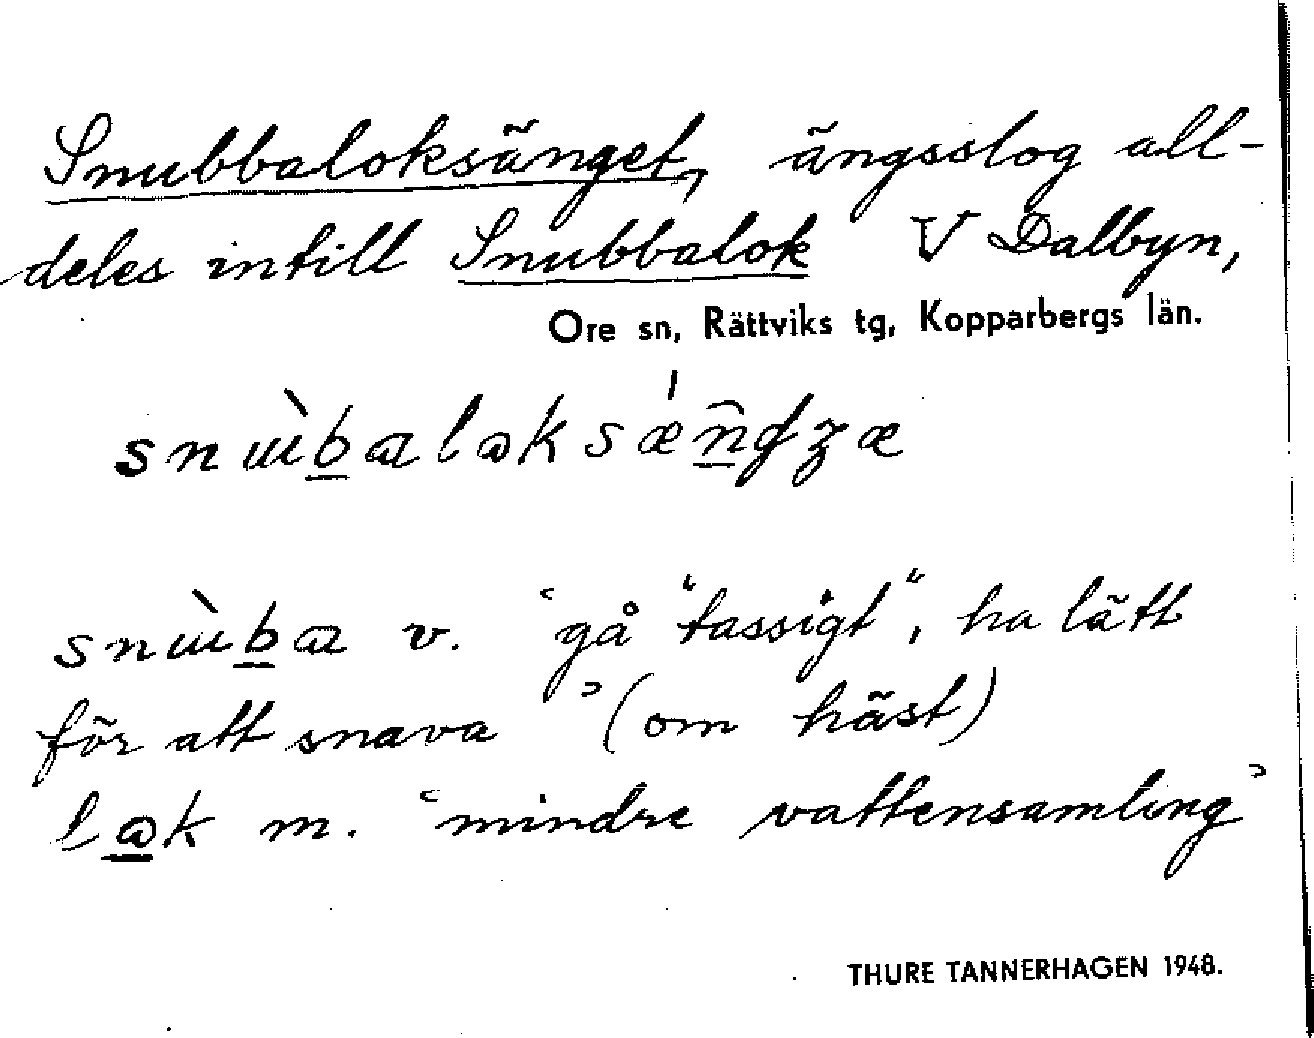 Snubbaloksänget, ängsslog all-
deles intill Snubbalok V Dalbyn,
Ore sn, Rättviks tg, Kopparbergs län.
v. ʿgå "tassigt", ha lätt
för att snavaʾ (om häst)
m. ʿmindre vattensamlingʾ
THURE TANNERHAGEN 1948.